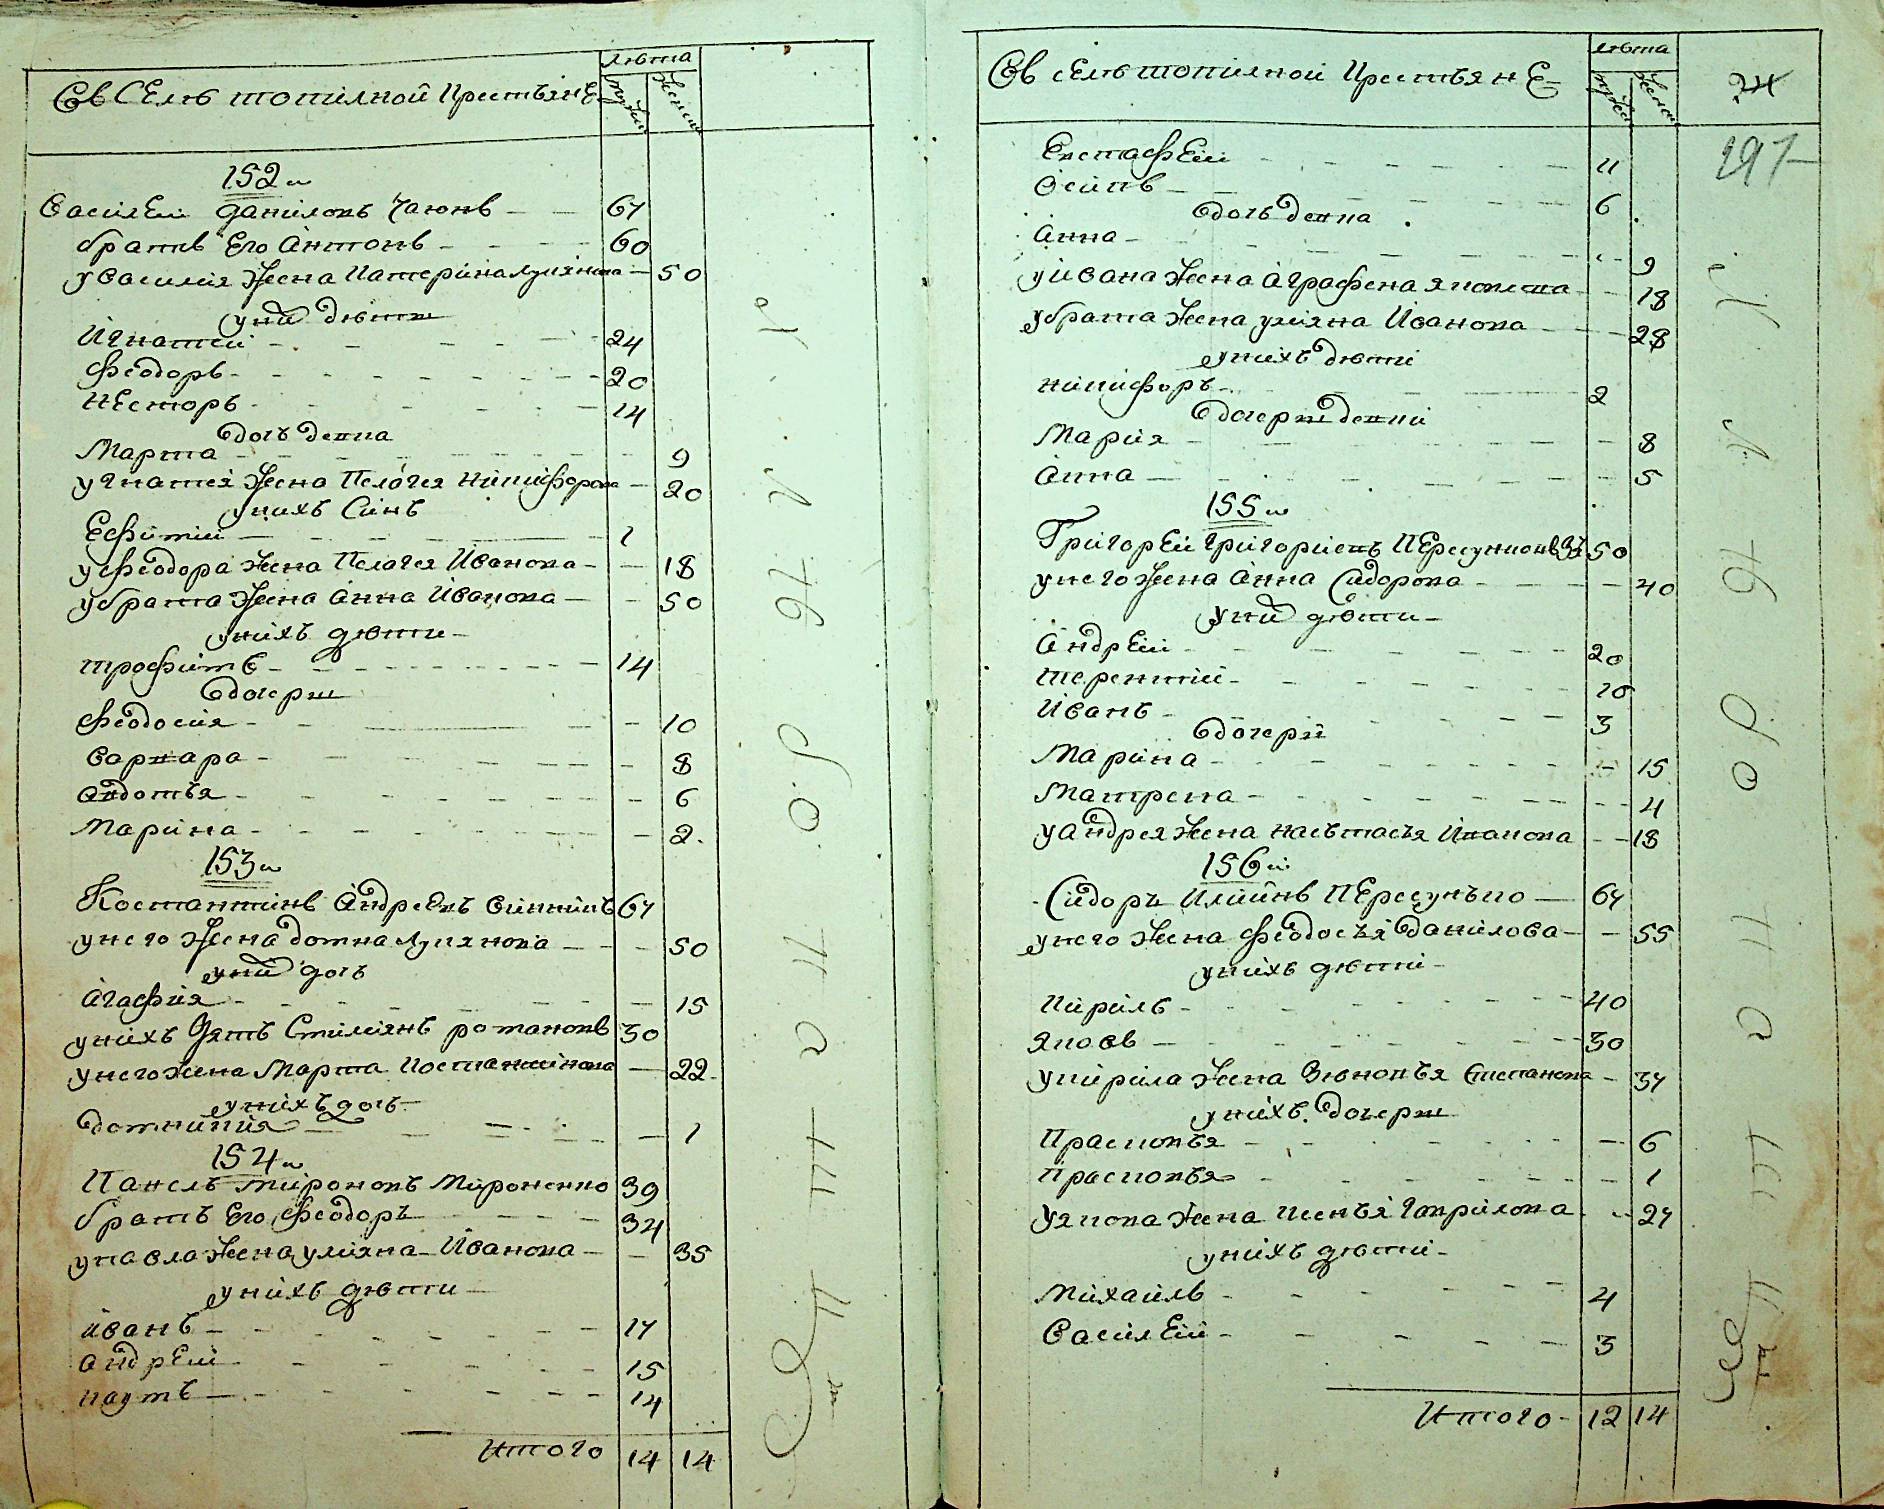 Въ Селѣ топилной крестьянѣ
лѣта
мужеск
женск
152 и
Василей данилов Чаюнъ 67
братъ Его Антонъ 60
у Василия жена катерина лукянова 50
у ний дѣти
Игнатей 24
Феодоръ 20
нЕсторъ 14
дочь девка
Марта 9
у гната жена Пелагея никифорова 20
у нихъ Синъ
Ефимий 1
у Феодора жена Пелагея Иванова 18
у брата жена Анна Иванова 50
у нихъ дѣти
трофимъ 14
дочери
Феодосия 10
варвара 8
авдотья 6
Марина 2
153 и
Костантинъ Андреевъ 67
у него жена домна лукянова 50
у ний дочь
Агафия 15
у нихъ зять Стилиянъ романовъ 30
у него жена Марта костантинова 22
у нихъ дочь
домникия 1
154 и
Павелъ мироновъ Мироненко 39
братъ Его Феодоръ 34
у павла жена улияна Иванова 35
у нихъ дѣти
иванъ 17
андрЕй 15
наумъ 14
Итого 14 14
Въ сЕлѣ топилной крестьянЕ
лѣта
мужеск
женск
24
297
ЕвстафЕй 11
Осипъ 6
дочь девка
Анна 9
у Ивана жена Аграфена яковлева 18
у брата жена улияна Иванова 28
у нихъ дѣти
никифоръ 2
дочери девки
Мария 8
Анна 5
155 и
ГригорЕй григориевъ 50
у него жена Анна Сидорова 40
у ний дѣти
АндрЕй 20
терентий 10
Иванъ 3
дочери
Марина 15
Матрена 4
у Андрея жена настасья Иванова 18
156 и
Сидоръ Илиинъ ПЕресунько 64
у него жена Феодосья данилова 55
у нихъ дѣти
кирилъ 40
яковъ 30
у кирила жена Зѣновья степанова 34
у нихъ дочери
Прасковья 6
прасковья 1
у якова жена ксенья гаврилова 27
у нихъ дѣти
михаилъ 4
ВасилЕй 3
Итого 12 14